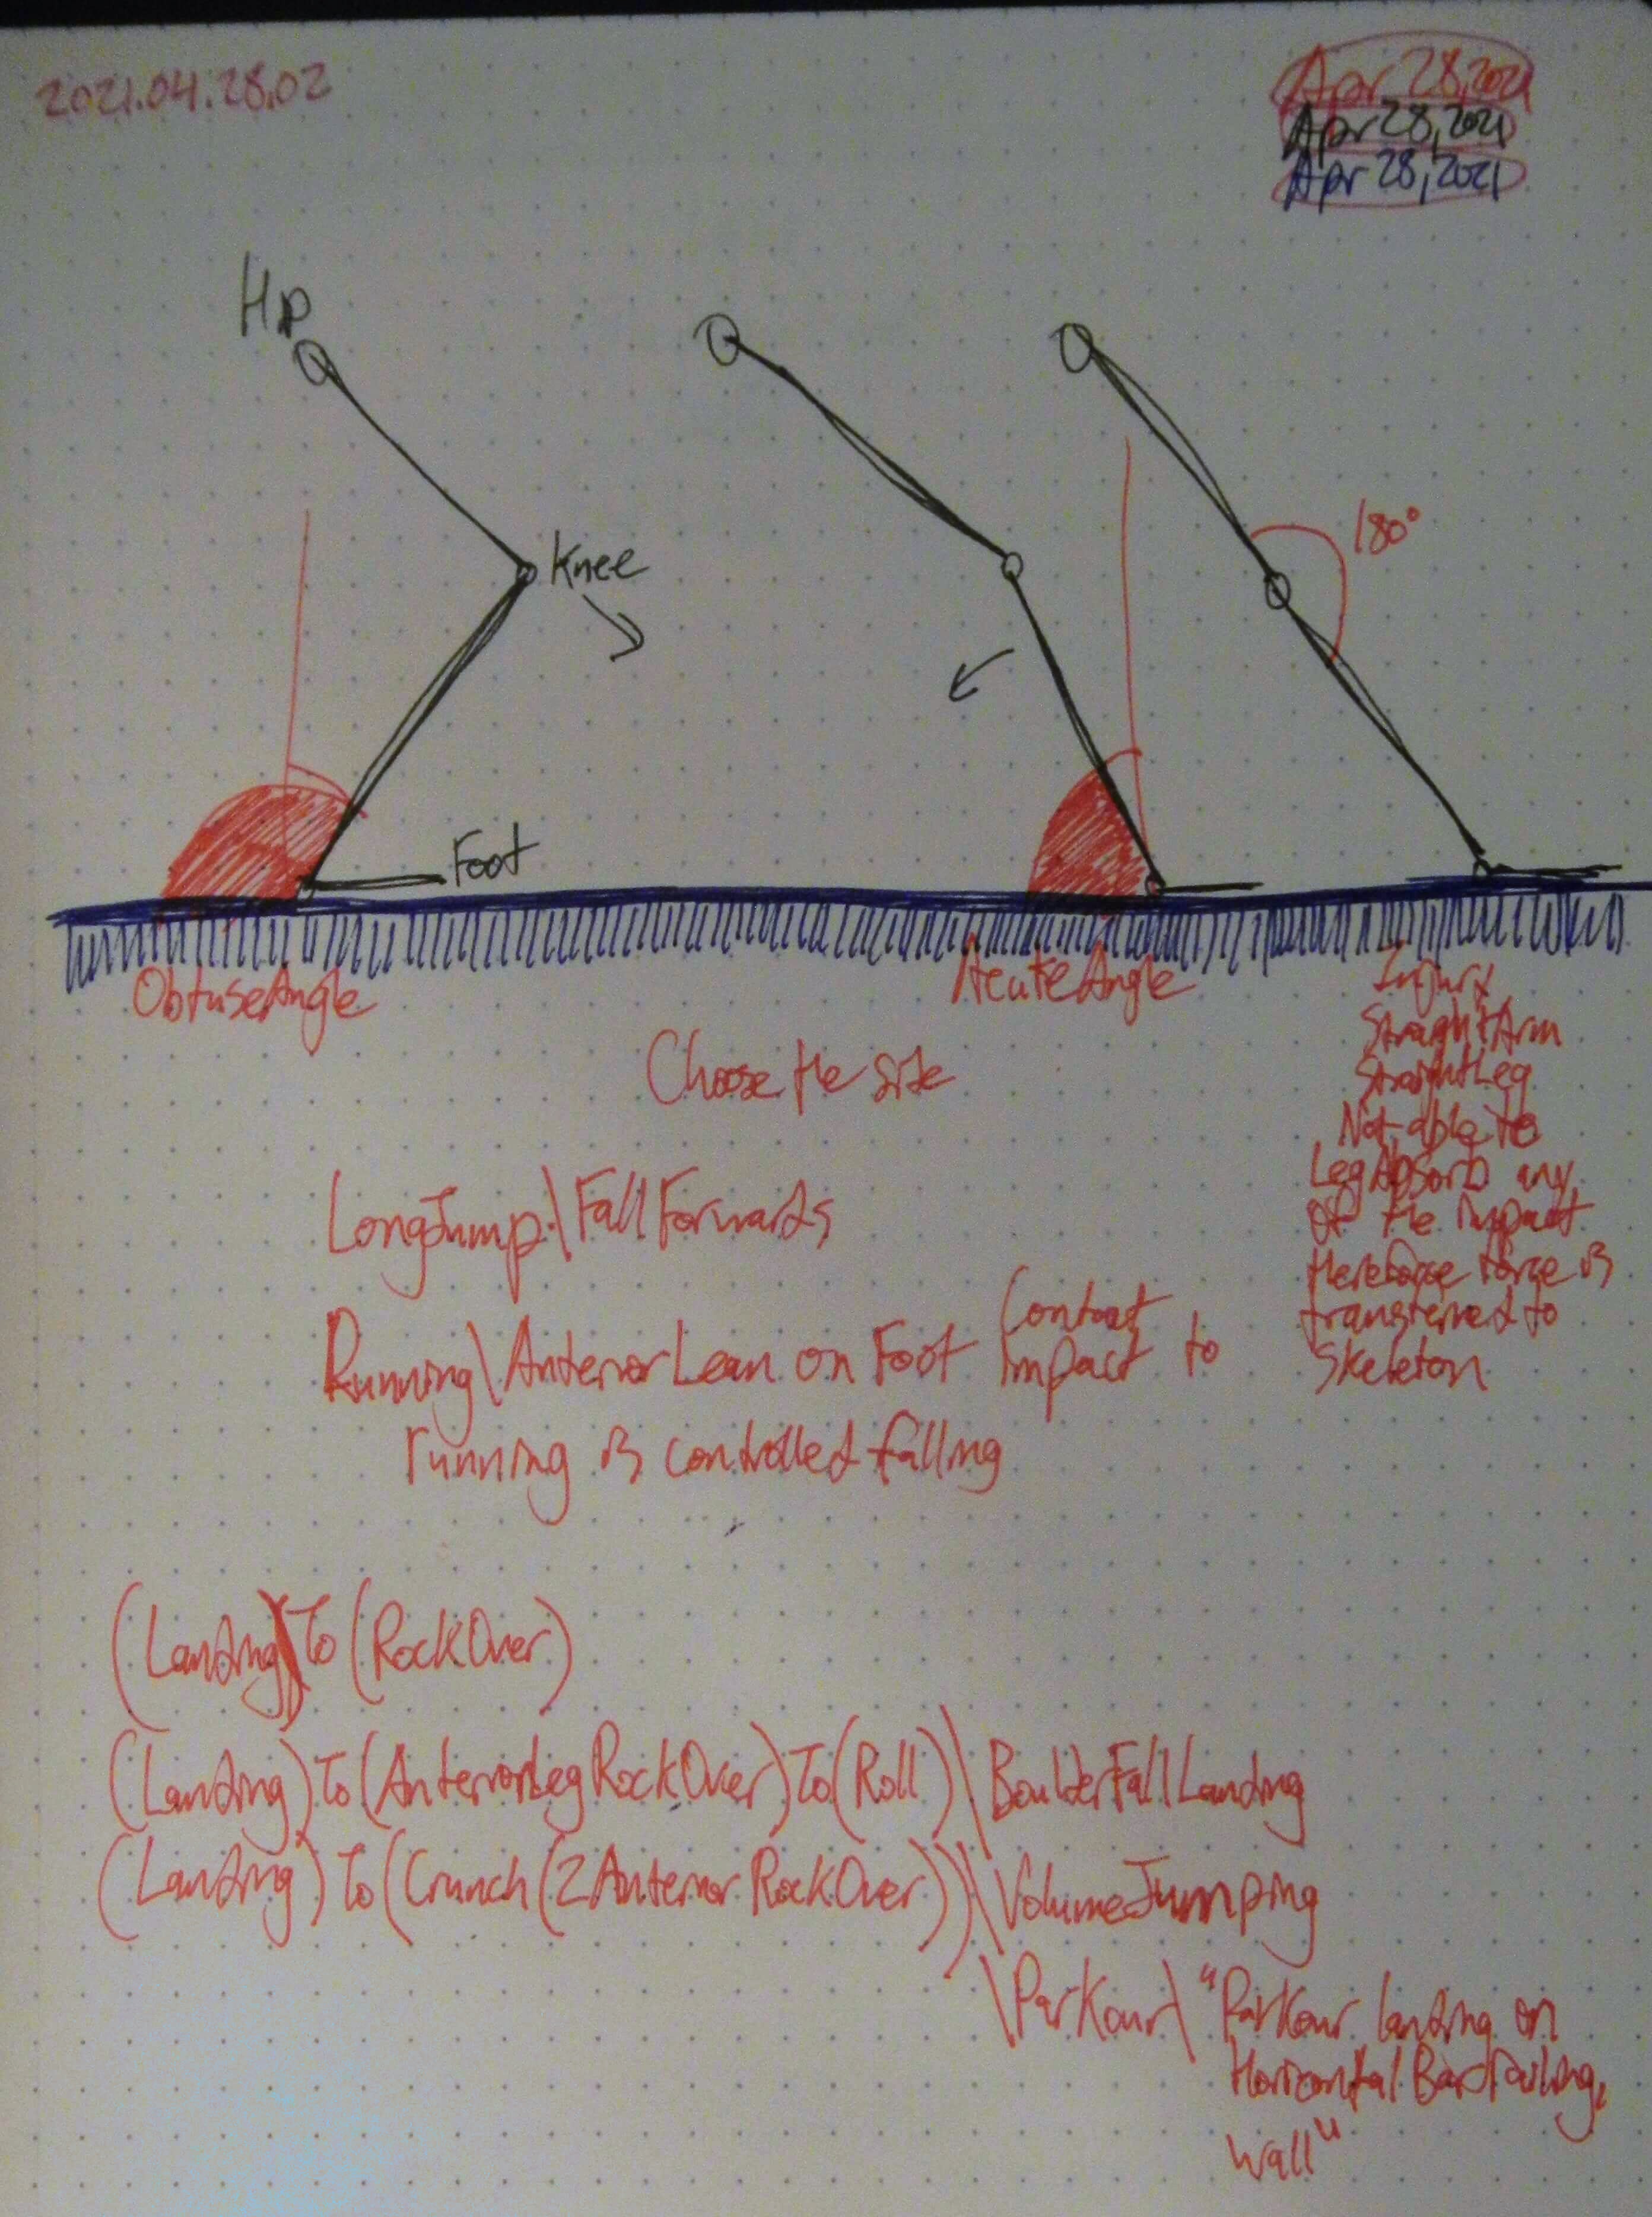 2021.04.28.02
Apr 28,2021
Apr 28,2021
Apr 28,2021
Hip
Knee
180°
Foot
ObtuseAngle
AcuteAngle
Choose the side
Injury
StraightArm
StraightLeg
Not able to
LegAbsorb any
of the impact
therefore force is
transferred to
Skeleton
LongJump\FallForwards
Running\AnteriorLean on Foot Impact to
Contact
running is controlled falling
(Landing)To(RockOver)
(Landing)To(AnteriorLegRockOver)To(Roll)\BoulderFallLanding
(Landing)To(Crunch(2AnteriorRockOver))\VolumeJumping
\Parkour\"Parkour landing on
HorizontalBar,railing,
wall"